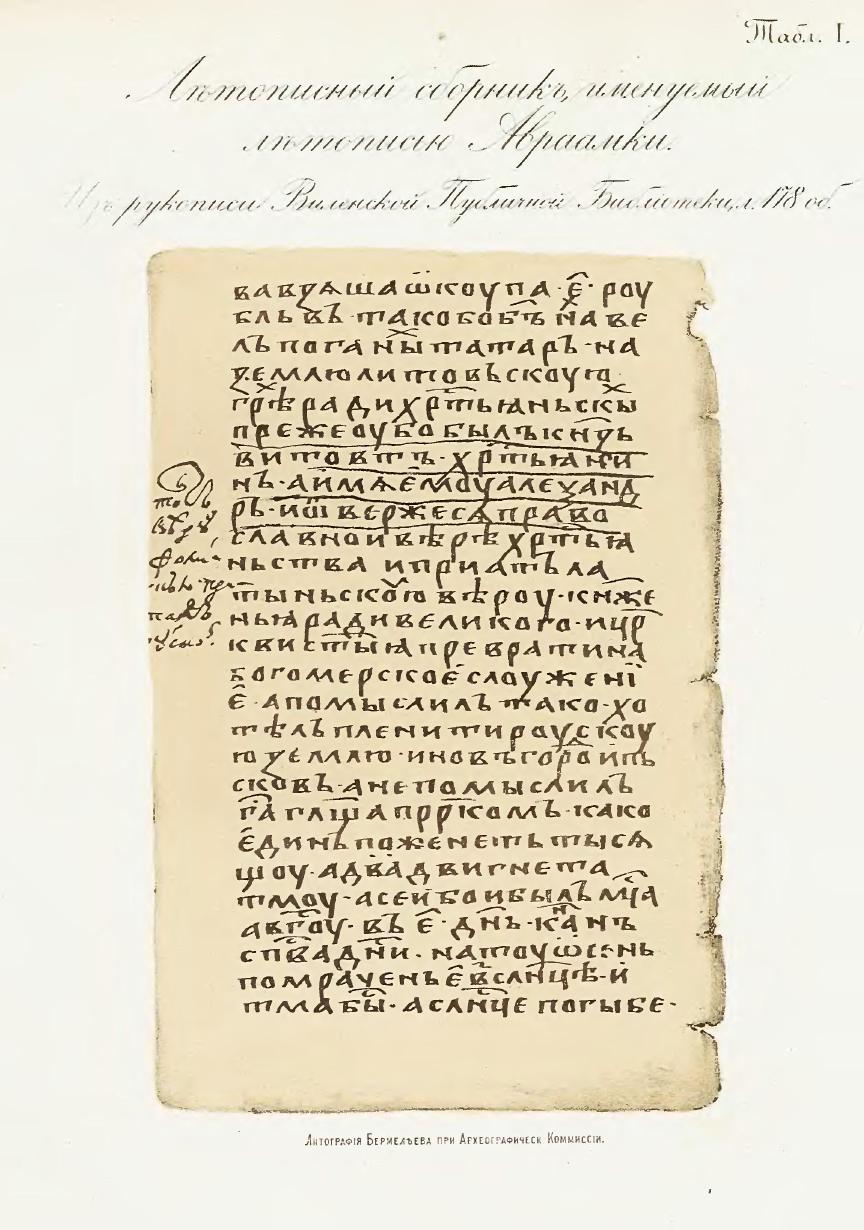 Табл. I.
Лѣтописный сборникъ, именуемый
лѣтописью Авраамки.
Изъ рукописи Виленской Публичной Библіотеки, л. 178 об.
вавꙁѧша ѿкоупа · є҃ · роу
бльвъ · тако бобъ на ве
лъ поганы татаръ · на
ꙁемлю литовьскоую
грѣ ради хртьꙗньскы
преже оубо былъ кнꙁь
витовтъ · хртьꙗни
нъ · а имѧ ємоу алеꙁанд
ръ · и ѿвержесѧ право
славнои вѣрѣ хртьꙗ
ньства и приатъ ла
тыньскою вѣроу · кнѧже
ньꙗ ради великого · и цр
кви стыꙗ преврати на
богомерскоє слоужені
є · а помыслилъ тако · хо
тѣлъ пленити роускоу
ю ꙁемлю · и новъгоро и пь
сковъ · а не помыслилъ
га глща прркомъ · како
єдинъ поженеть тысѧ
щоу · а два двигнета
тмоу · а сеи бои былъ мца
авгоу · въ є҃ · днь · канъ
спва дни · на тоу ѿсень
помраченьє в слнцѣ · и
тма бы · а слнце погыбе ·
Литографія Бермелѣева при Археографическ Коммиссіи.